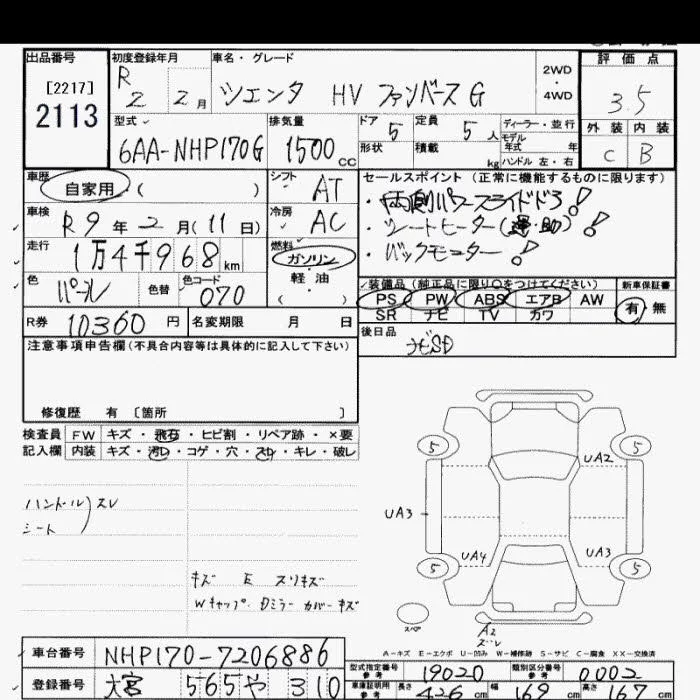 出品番号 初度登録年月 車名・グレード 2WD・4WD 評価点
[2217]
2113
R 2 2月 シエンタ HV ファンベースG 3.5
型式 排気量 ドア 5 定員 5人 ディーラー・並行
モデル年式 年
外装 内装
6AA-NHP170G 1500cc 形状 積載 kg ハンドル 左・右 C B
車歴 自家用 ( ) シフト AT
セールスポイント (正常に機能するものに限ります)
・両側パワースライドドア!
・シートヒーター(運・助)!
・バックモニター!
車検 R9年2月(11日) 冷房 AC
走行 1万4千968km 燃料 ガソリン
軽油
( )
色 パール 色替 色コード 070
装備品(純正品に限り○をつけてください) 新車保証書
PS PW ABS エアB AW 有 無
SR ナビ TV カワ
R券 10360円 名変期限 月 日
後日品 ナビSD
注意事項申告欄(不具合内容等は具体的に記入して下さい)
修復歴 有 [箇所 ]
検査員記入欄
FW キズ・飛石・ヒビ割・リペア跡・×要
内装 キズ・汚レ・コゲ・穴・スレ・キレ・破レ
ハンドル
シート
スレ
キズ E スリキズ
Wキャップ.Dミラーカバーキズ
5 5
UA2
UA3
UA4 UA3
5 5
スペア
A2
ズレ
A-キズ E-エクボ U-凹み W-補修跡 S-サビ C-腐食 XX-交換済
車台番号 NHP170-7206886
登録番号 大宮 565 や 310
型式指定番号 参考 19020 類別区分番号 参考 0002
車庫証明用 参考 長さ 426cm 幅 169cm 高さ 167cm